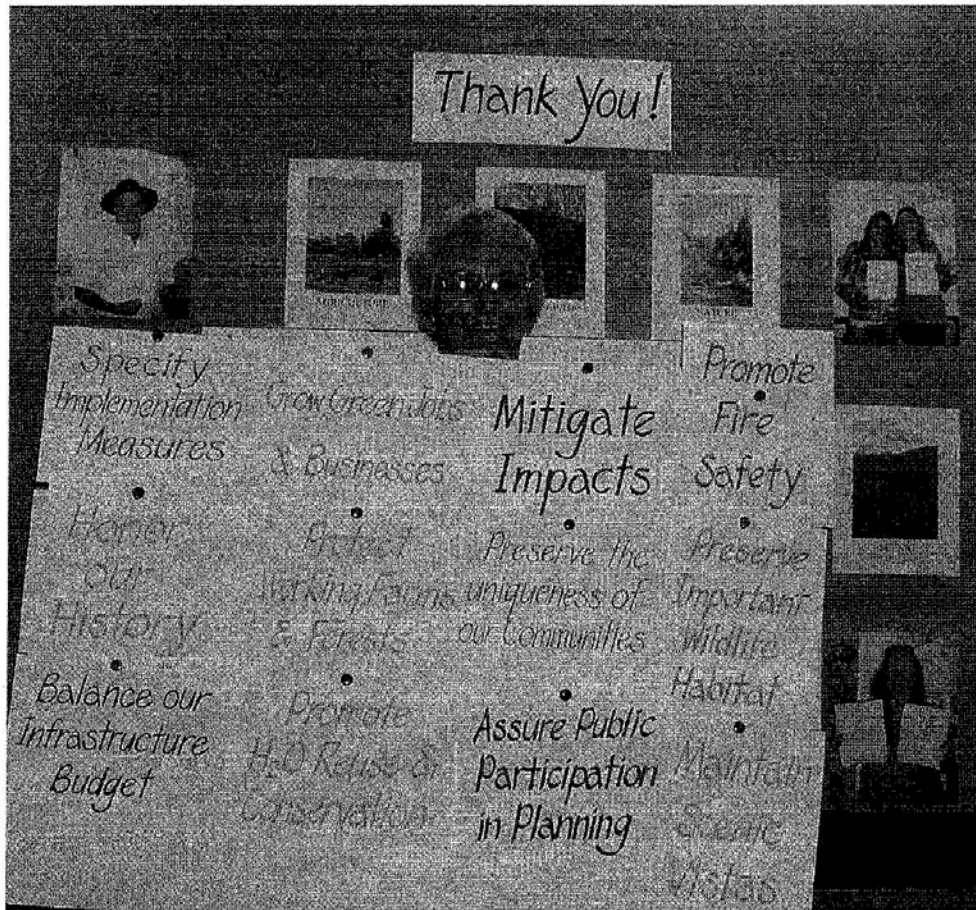 Thank You!
AGRICULTURE
NATURE
Specify
Implementation
Measures
Honor
our
History
Balance our
Infrastructure
Budget
Grow Green Jobs
& Businesses
Protect
Working Farms
& Forests
Promote
H₂O Reuse &
Conservation
Mitigate
Impacts
Preserve the
uniqueness of
our Communities
Assure Public
Participation
in Planning
Promote
Fire
Safety
Preserve
Important
Wildlife
Habitat
Maintain
Scenic
Vistas